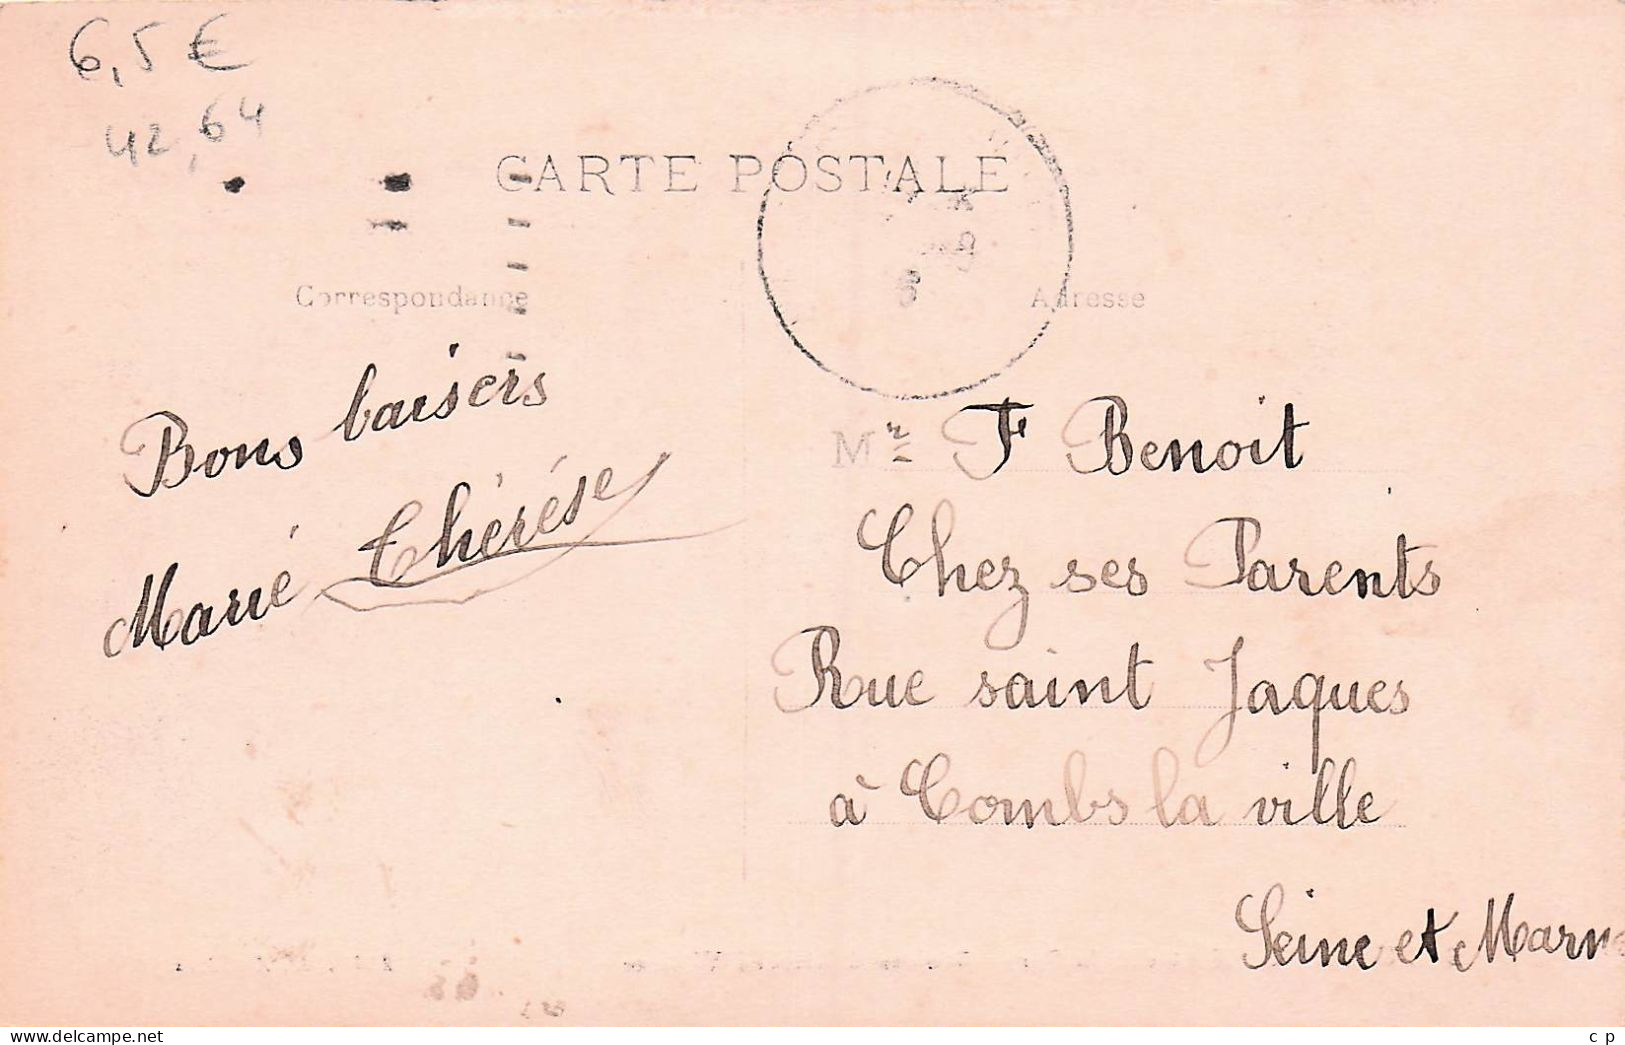 6,5 €
42,64
CARTE POSTALE
Correspondance
Adresse
Bons baisers
Marié Thérése
Mr F Benoit
Chez ses Parents
Rue saint Jaques
à Combs la ville
Seine et Marne
www.delcampe.net
c p